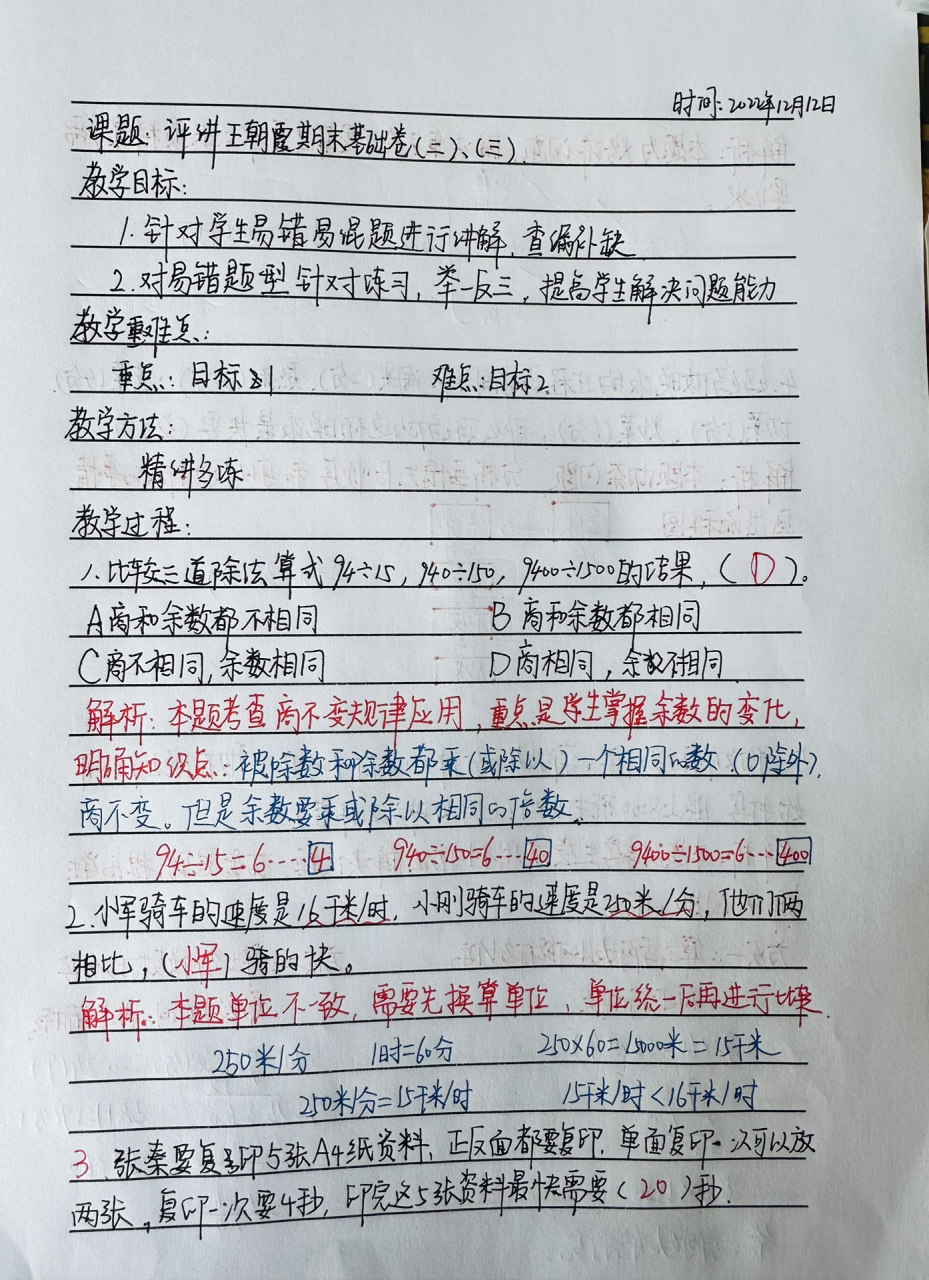 时间:2022年12月12日
课题:评讲王朝霞期末基础卷(二)、(三)
教学目标:
1.针对学生易错易混题进行讲解,查漏补缺
2.对易错题型针对练习,举一反三,提高学生解决问题能力
教学重难点:
重点:目标1 难点:目标2
教学方法:
精讲多练
教学过程:
1.比较三道除法算式94÷15,940÷150,9400÷1500的结果,(D)。
A商和余数都不相同 B商和余数都相同
C商不相同,余数相同 D商相同,余数不相同
解析:本题考查商不变规律应用,重点是学生掌握余数的变化,
明确知识点:被除数和除数都乘(或除以)一个相同的数(0除外),
商不变。但是余数要乘或除以相同的倍数.
94÷15=6····4 940÷150=6···40 9400÷1500=6···400
2.小军骑车的速度是16千米/时,小刚骑车的速度是250米/分,他们两
相比,(小军)骑的快。
解析:本题单位不一致,需要先换算单位,单位统一后再进行比较.
250米/分 1时=60分 250×60=15000米=15千米
250米/分=15千米/时 15千米/时<16千米/时
3.张秦要复印5张A4纸资料,正反面都要复印.单面复印一次可以放
两张,复印一次要4秒,印完这5张资料最快需要(20)秒.